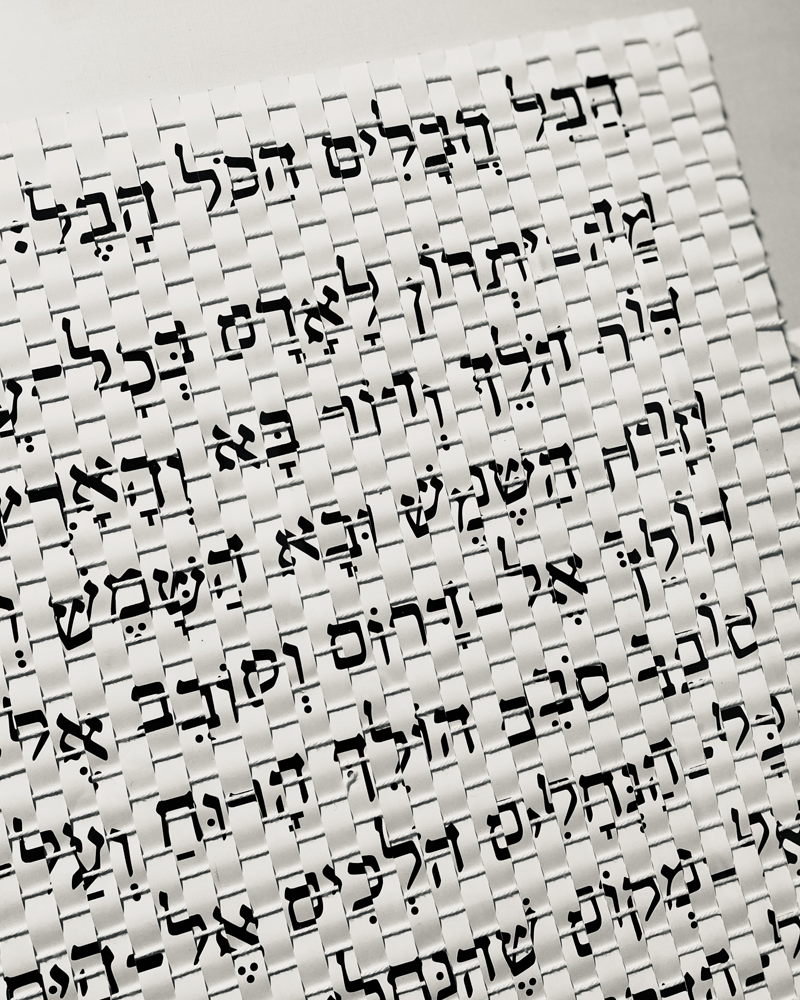 הבל הֲבָלִים הַכֹּל הָבֶל׃
מַה-יִּתְרוֹן לָאָדָם בְּכָל-
דּוֹר הֹלֵךְ וְדוֹר בָּא וְהָאָרֶץ
וְזָרַח הַשֶּׁמֶשׁ וּבָא הַשָּׁמֶשׁ
הוֹלֵךְ אֶל-דָּרוֹם וְסוֹבֵב אֶל
סוֹבֵב סֹבֵב הוֹלֵךְ הָרוּחַ וְעַל
כָּל-הַנְּחָלִים הֹלְכִים אֶל-
אֶל-מְקוֹם